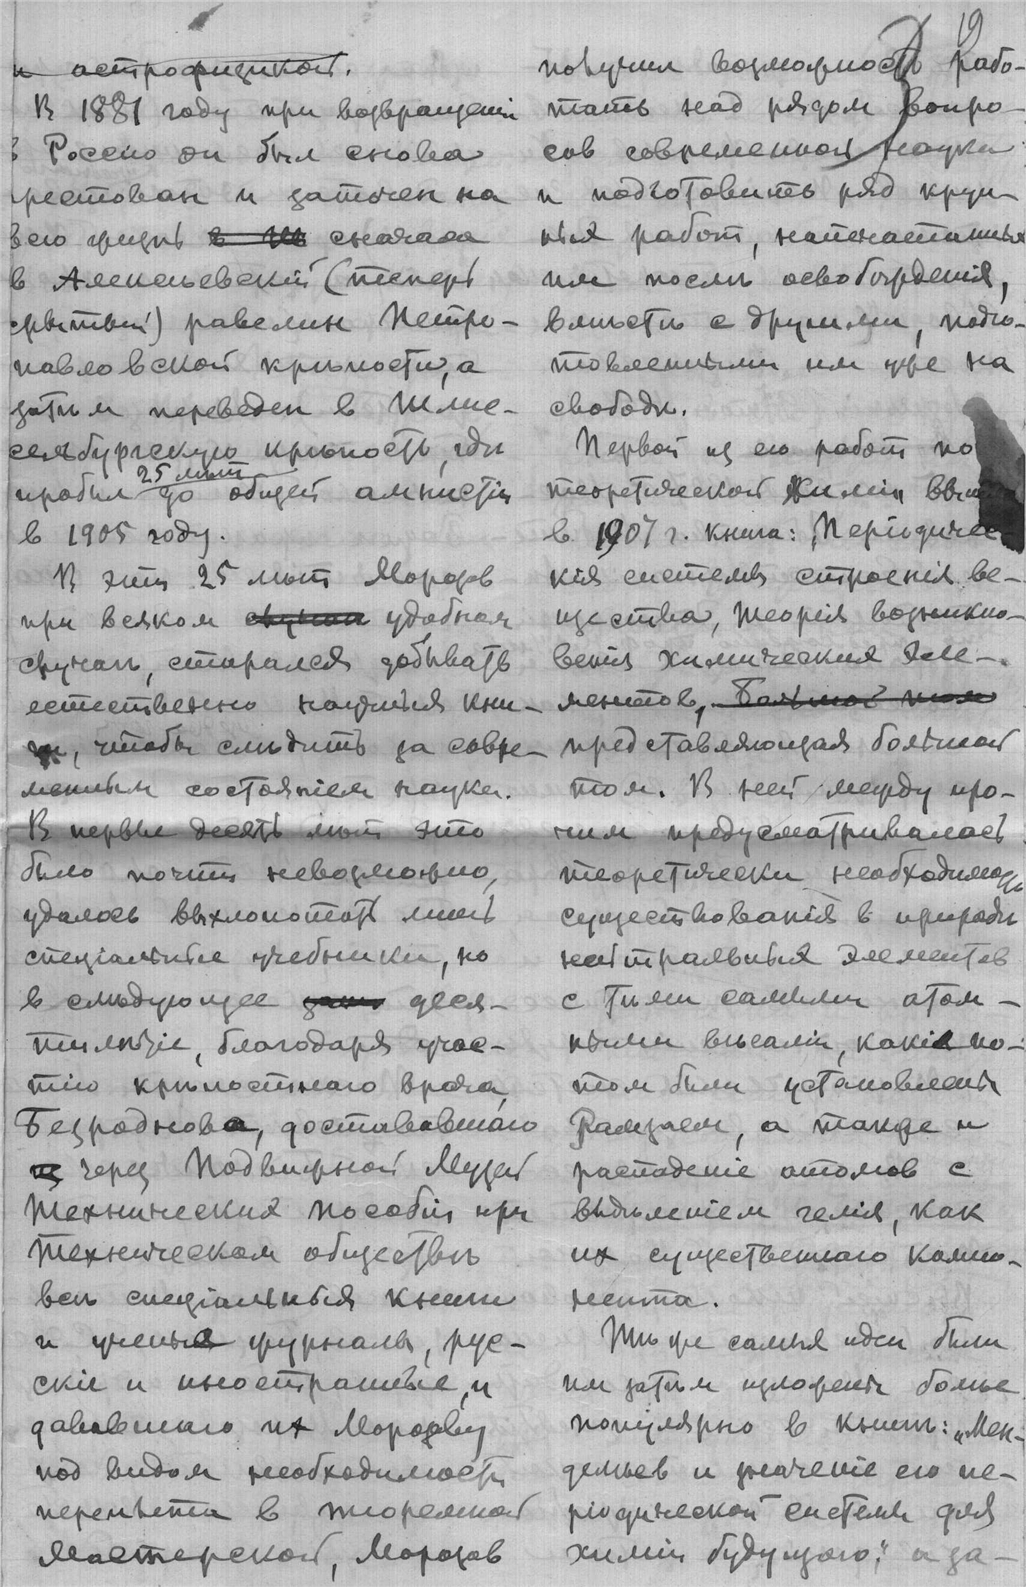 19
и астрофизикой.
В 1881 году при возвращеніи
в Россію он был снова
арестован и заточен на
всю жизнь сначала
в Алексѣевскій (теперь
срытый) равелин Петро-
павловской крѣпости, а
затѣм переведен в Шлис-
сельбургскую крѣпость, гдѣ
пробыл 25 лѣт до общей амнистіи
в 1905 году.
В эти 25 лѣт Морозов
при всяком случаѣ удобном
случаѣ, старался добывать
естественно научныя кни-
ги, чтобы слѣдить за совре-
менным состояніем науки.
В первые десять лѣт это
было почти невозможно,
удалось выхлопотать лишь
спеціальные учебники, но
в слѣдующее деся-
тилѣтіе, благодаря учас-
тію крѣпостного врача
Безроднова, доставлявшаго
через Подвижной Музей
Технических пособій при
Техническом обществѣ
всѣ спеціальныя книги
и ученые журналы, рус-
скіе и иностранные, и
дававшаго их Морозову
под видом необходимости
переплета в тюремной
мастерской, Морозов
получил возможность рабо-
тать над рядом вопро-
сов современной науки
и подготовить ряд круп-
ных работ, напечатанных
им послѣ освобожденія,
вмѣстѣ с другими, подго-
товленными им уже на
свободѣ.
Первой из его работ по
теоретической химіи
в 1907 г. книга: „Періодичес-
кія системы строенія ве-
щества, теорія возникно-
венія химических эле-
ментов, Большой том
представляющая большой
том. В ней между про-
чим предусматривалась
теоретически необходимость
существованія в природѣ
нейтральных элементов
с тѣми самыми атом-
ными вѣсами, какіе по-
том были установлены
Рамзаем, а также и
распаденіе атомов с
выдѣленіем гелія, как
их существеннаго компо-
нента.
Тѣ же самыя идеи были
им затѣм изложены болѣе
популярно в книгѣ: „Мен-
делѣев и значеніе его пе-
ріодической системы для
химіи будущаго", а за-